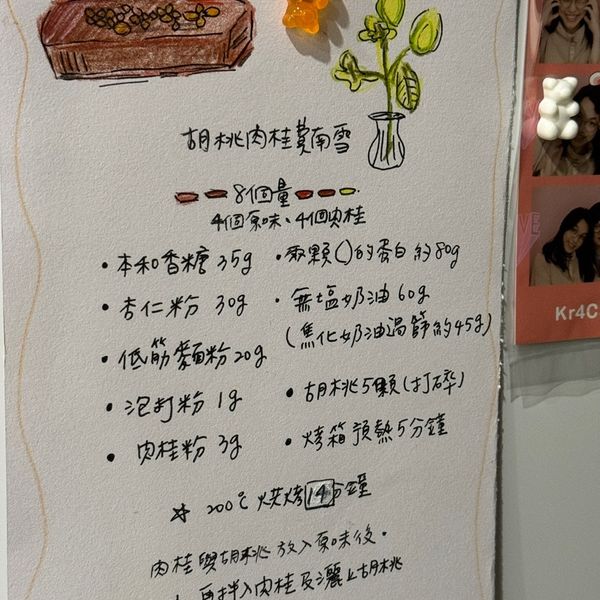 胡桃肉桂費南雪
8個量
4個原味、4個肉桂
• 本和香糖 35g
• 杏仁粉 30g
• 低筋麵粉 20g
• 泡打粉 1g
• 肉桂粉 3g
• 兩顆()的蛋白約80g
• 無塩奶油 60g
(焦化奶油過篩約45g)
• 胡桃5顆(打碎)
• 烤箱預熱5分鐘
☆ 200℃ 烘烤14分鐘
肉桂與胡桃放入原味後.
再拌入肉桂及灑上胡桃
Kr4C